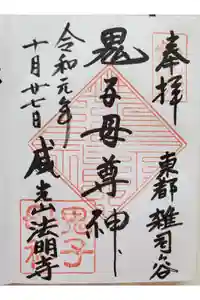 奉拝
東都雑司ヶ谷
鬼子母尊神
威光山法明寺
令和元年
十月廿七日
鬼子